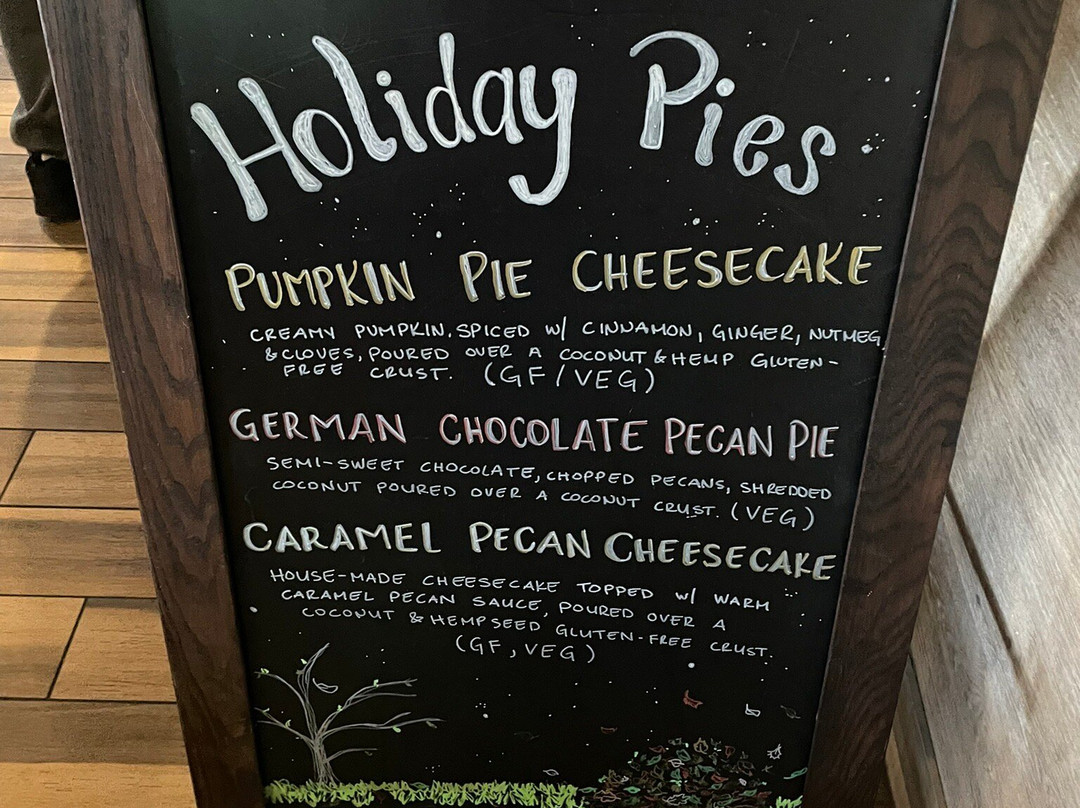 Holiday Pies
PUMPKIN PIE CHEESECAKE
CREAMY PUMPKIN, SPICED W/ CINNAMON, GINGER, NUTMEG,
& CLOVES, POURED OVER A COCONUT & HEMP GLUTEN-
FREE CRUST. (GF/VEG)
GERMAN CHOCOLATE PECAN PIE
SEMI-SWEET CHOCOLATE, CHOPPED PECANS, SHREDDED
COCONUT POURED OVER A COCONUT CRUST. (VEG)
CARAMEL PECAN CHEESECAKE
HOUSE-MADE CHEESECAKE TOPPED W/ WARM
CARAMEL PECAN SAUCE, POURED OVER A
COCONUT & HEMPSEED GLUTEN-FREE CRUST.
(GF, VEG)